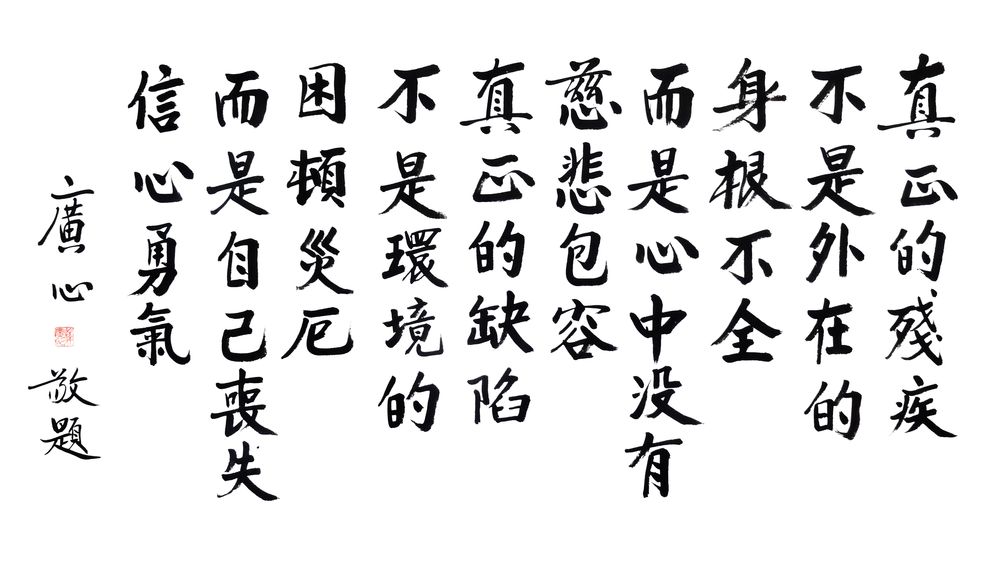 真正的殘疾
不是外在的
身根不全
而是心中没有
慈悲包容
真正的缺陷
不是環境的
困頓災厄
而是自己喪失
信心勇氣
廣心
敬題